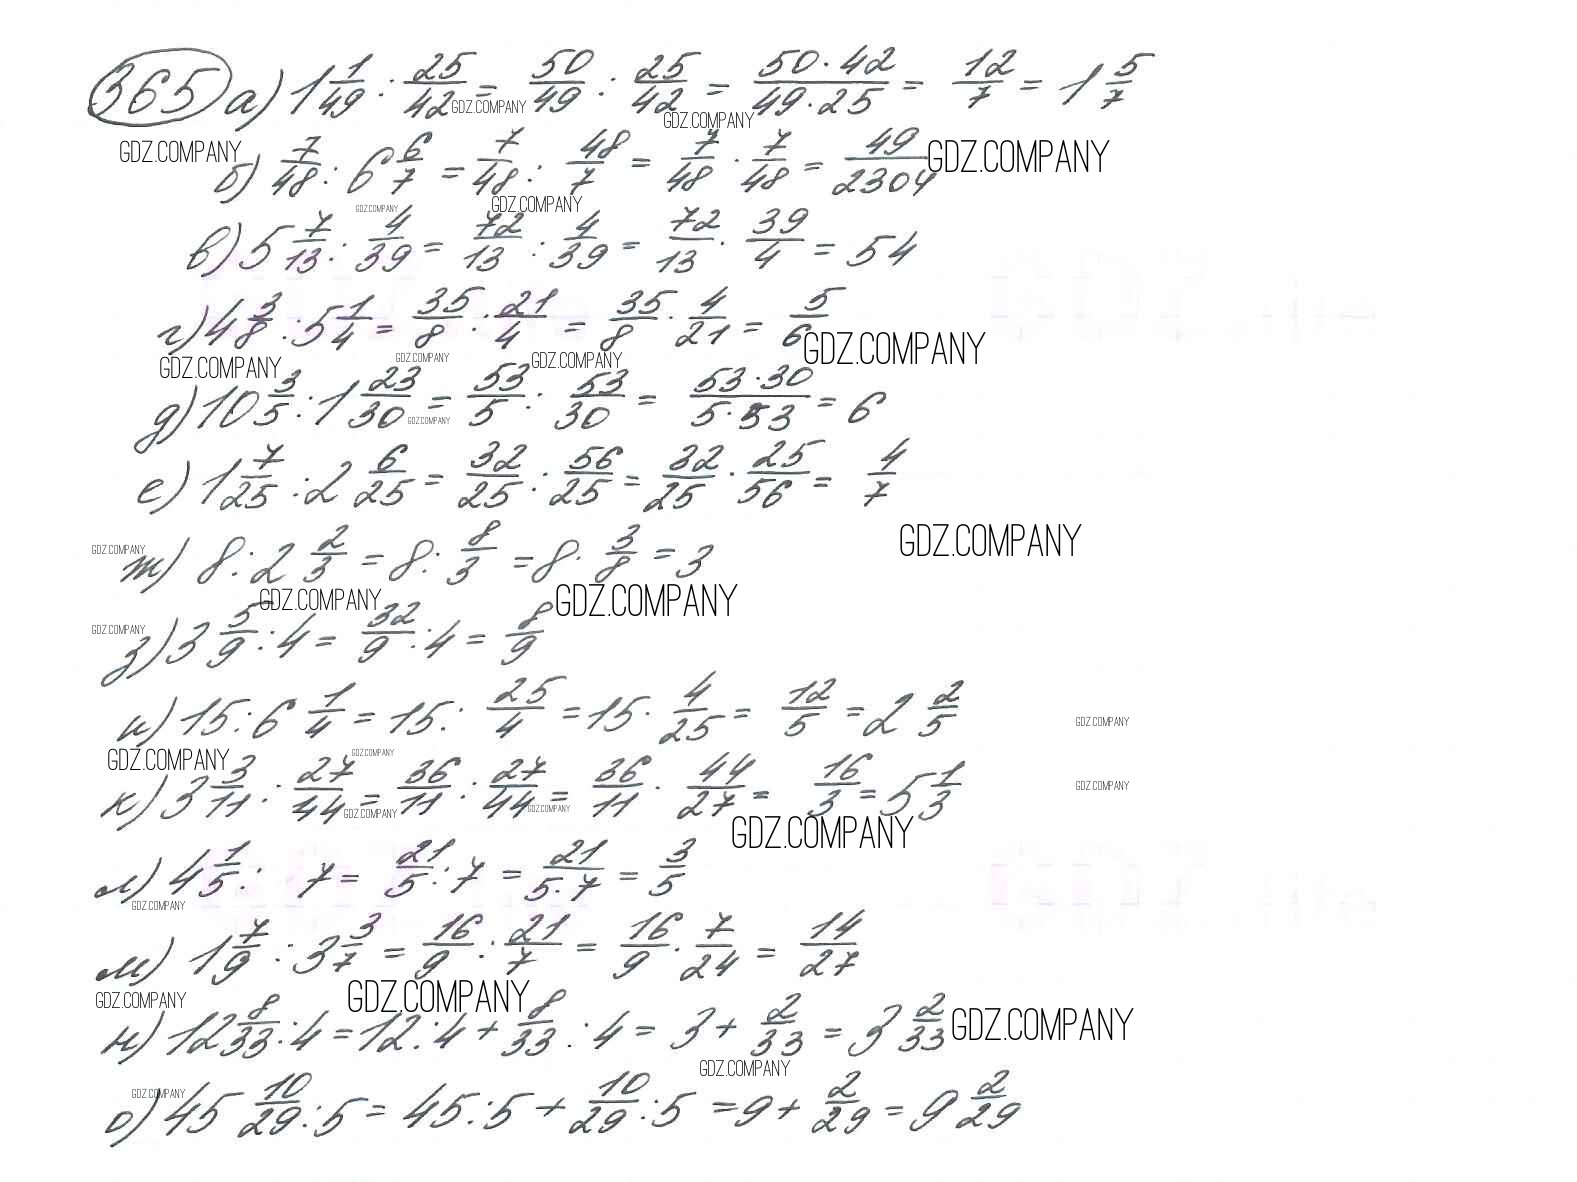 365 а) 1 1/49 : 25/42 = 50/49 : 25/42 = 50·42/49·25 = 12/7 = 1 5/7
б) 7/48 : 6 6/7 = 7/48 : 48/7 = 7/48 · 7/48 = 49/2304
в) 5 7/13 : 4/39 = 72/13 : 4/39 = 72/13 · 39/4 = 54
г) 4 3/8 : 5 1/4 = 35/8 : 21/4 = 35/8 · 4/21 = 5/6
д) 10 3/5 : 1 23/30 = 53/5 : 53/30 = 53·30/5·53 = 6
е) 1 7/25 : 2 6/25 = 32/25 : 56/25 = 32/25 · 25/56 = 4/7
ж) 8 : 2 2/3 = 8 : 8/3 = 8 · 3/8 = 3
з) 3 5/9 : 4 = 32/9 : 4 = 8/9
и) 15 : 6 1/4 = 15 : 25/4 = 15 · 4/25 = 12/5 = 2 2/5
к) 3 3/11 : 27/44 = 36/11 : 27/44 = 36/11 · 44/27 = 16/3 = 5 1/3
л) 4 1/5 : 7 = 21/5 : 7 = 21/5·7 = 3/5
м) 1 7/9 : 3 3/7 = 16/9 : 21/7 = 16/9 · 7/24 = 14/27
н) 12 8/33 : 4 = 12 : 4 + 8/33 : 4 = 3 + 2/33 = 3 2/33
о) 45 10/29 : 5 = 45 : 5 + 10/29 : 5 = 9 + 2/29 = 9 2/29
GDZ.COMPANY